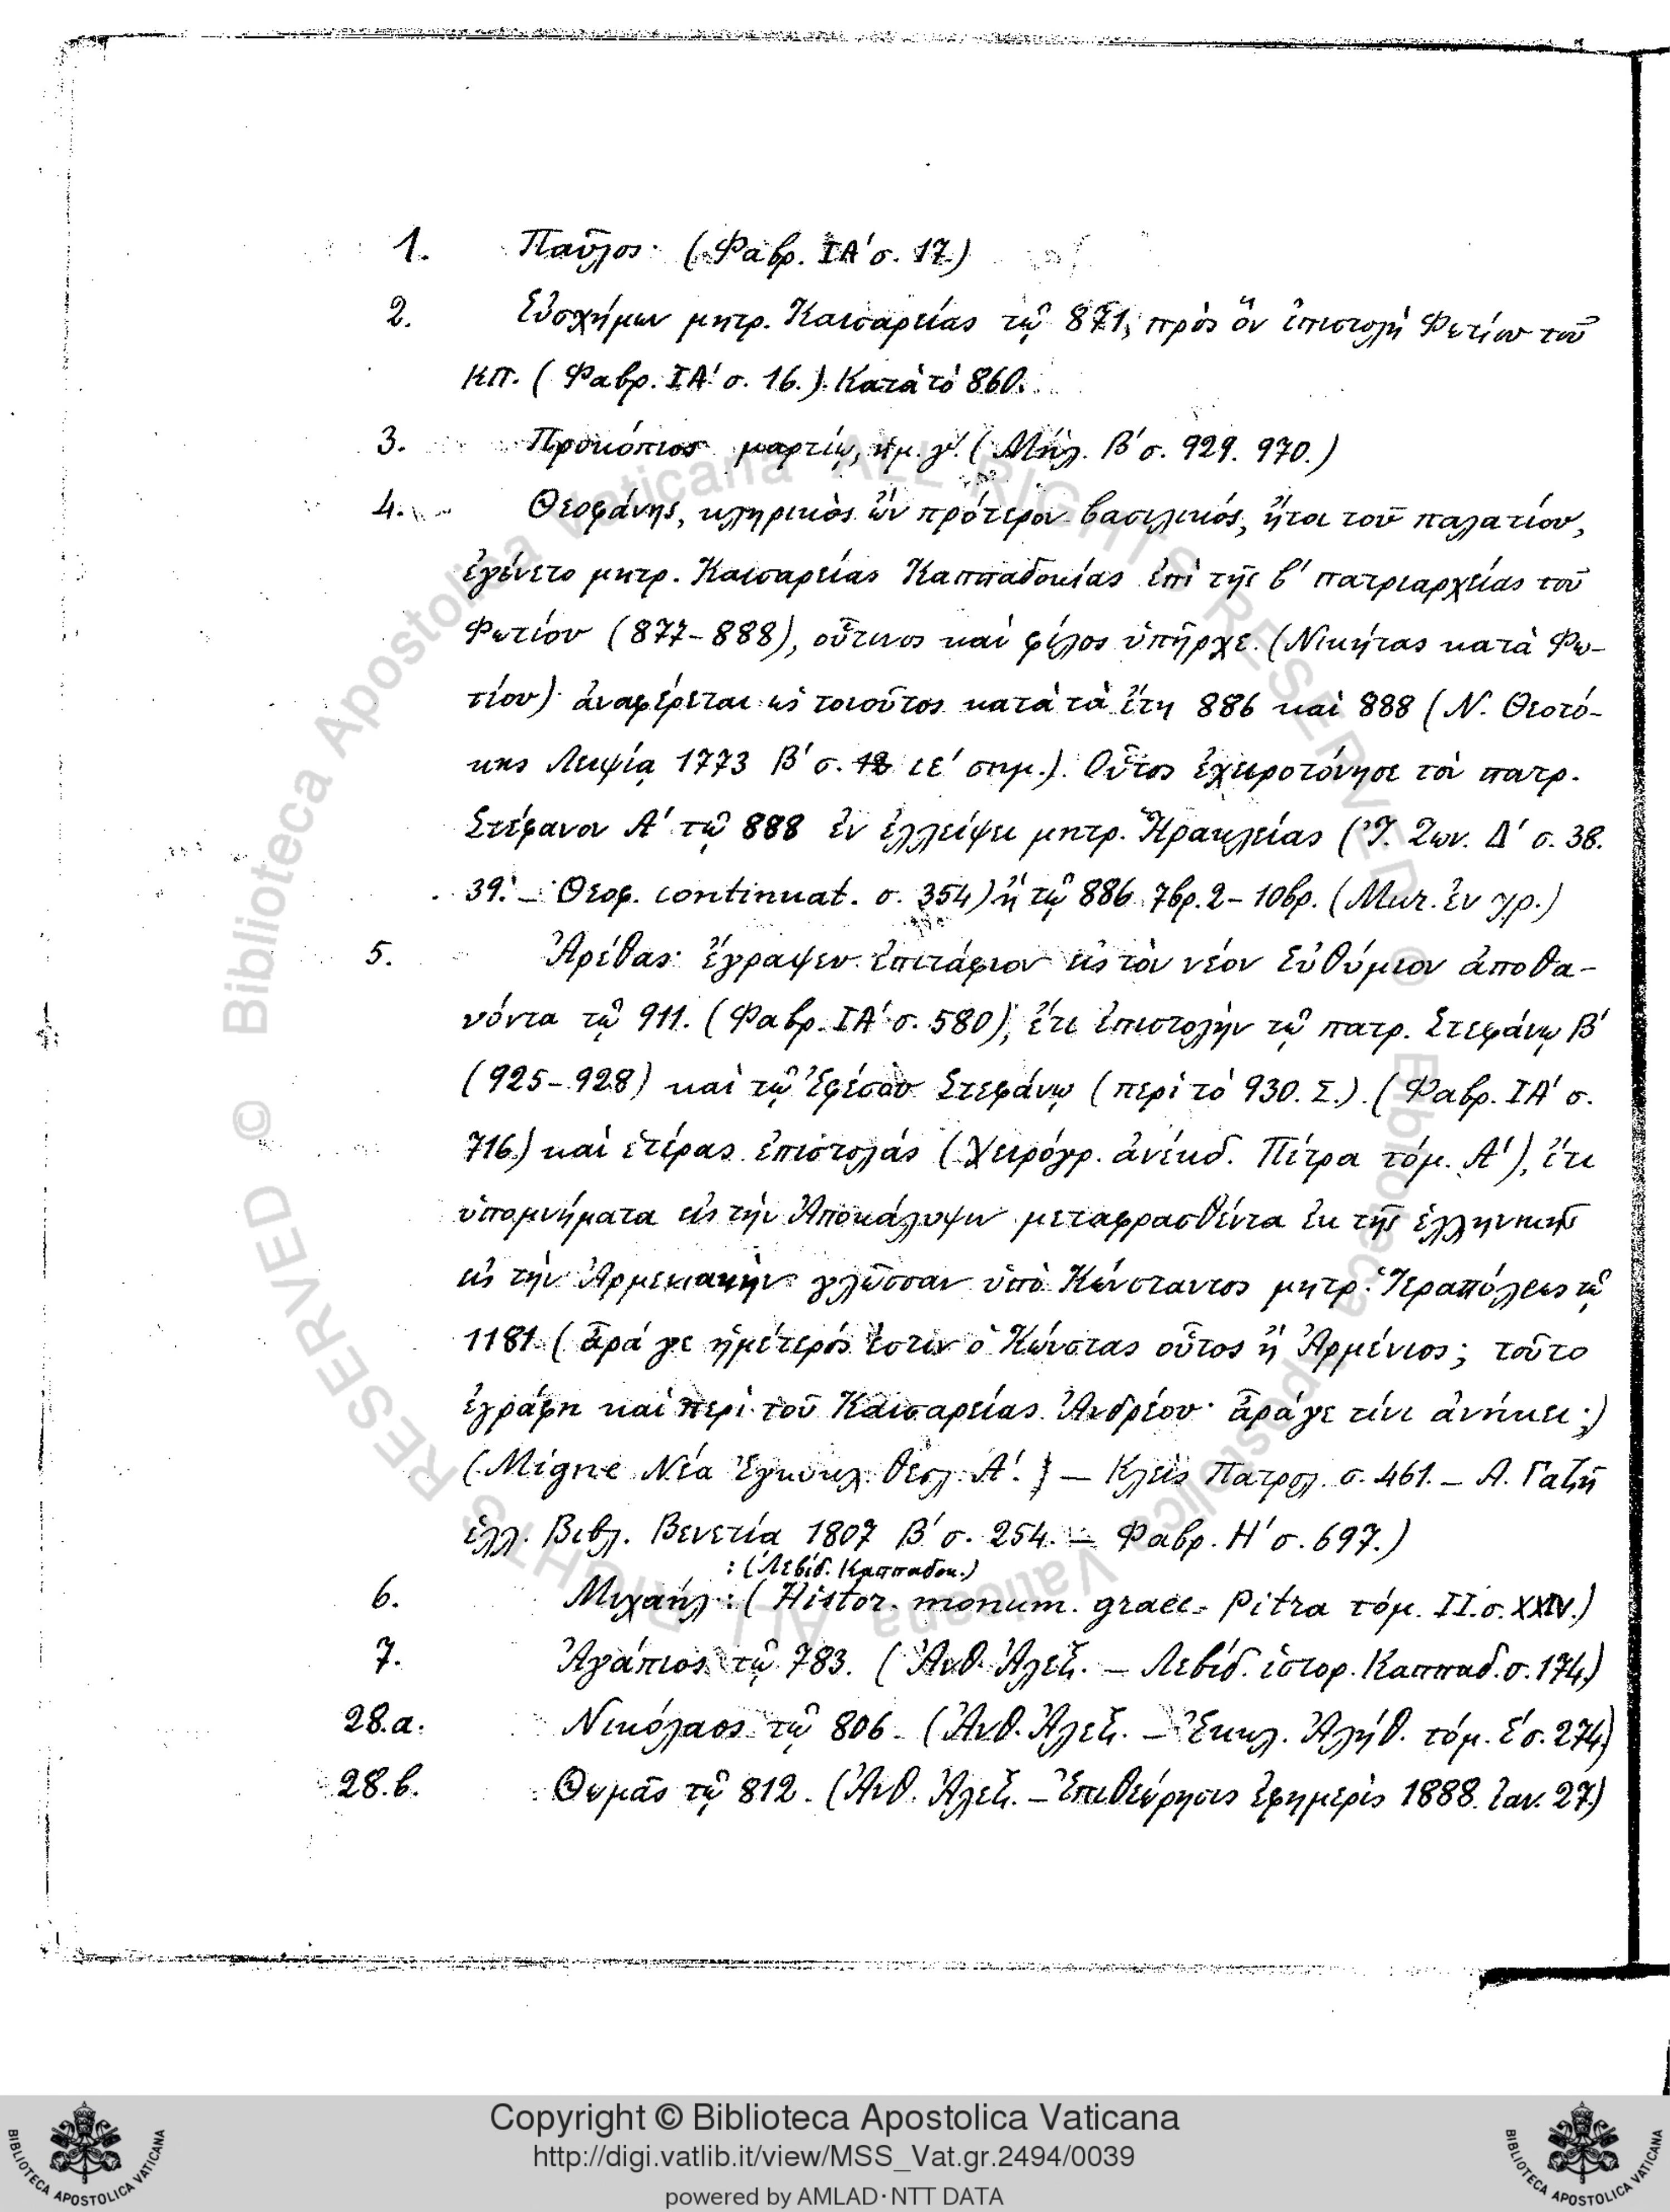 1. Παῦλος· (Φαβρ. ΙΑ′ σ. 17.)
2. Εὐσχήμων μητρ. Καισαρείας τῷ 871, πρὸς ὃν ἐπιστολὴ Φωτίου τοῦ
ΚΠ. (Φαβρ. ΙΑ′ σ. 16.) Κατὰ τὸ 860.
3. Προκόπιος (Μήλ. Β′ σ. 929. 970.)
4. Θεοφάνης, κληρικὸς ὢν πρότερον βασιλικός, ἤτοι τοῦ παλατίου,
ἐγένετο μητρ. Καισαρείας Καππαδοκίας ἐπὶ τῆς β′ πατριαρχείας τοῦ
Φωτίου (877-888), οὗτινος καὶ φίλος ὑπῆρχε. (Νικήτας κατὰ Φω-
τίου)· ἀναφέρεται ὡς τοιοῦτος κατὰ τὰ ἔτη 886 καὶ 888 (Ν. Θεοτό-
κης Λειψία 1773 Β′ σ. ιε′ σημ.). Οὗτος ἐχειροτόνησε τὸν πατρ.
Στέφανον Α′ τῷ 888 ἐν ἐλλείψει μητρ. Ἡρακλείας (Ἰ. Ζων. Δ′ σ. 38.
39. – Θεοφ. continuat. σ. 354) ἢ τῷ 886 7βρ. 2 – 10βρ. (Μur. ἐν χρ.)
5. Ἀρέθας· ἔγραψεν ἐπιτάφιον εἰς τὸν νέον Εὐθύμιον ἀποθα-
νόντα τῷ 911. (Φαβρ. ΙΑ′ σ. 580), ἔτι ἐπιστολὴν τῷ πατρ. Στεφάνῳ Β′
(925-928) καὶ τῷ Ἐφέσου Στεφάνῳ (περὶ τὸ 930. Σ.). (Φαβρ. ΙΑ′ σ.
716.) καὶ ἑτέρας ἐπιστολάς (Χειρόγρ. ἀνέκδ. Πίτρα τόμ. Α′), ἔτι
ὑπομνήματα εἰς τὴν Ἀποκάλυψιν μεταφρασθέντα ἐκ τῆς ἑλληνικῆς
εἰς τὴν Ἀρμενιακὴν γλῶσσαν ὑπὸ Κώνσταντος μητρ. Ἱεραπόλεως τῷ
1181. (ἆρά γε ἡμέτερός ἐστιν ὁ Κώνστας οὗτος ἢ Ἀρμένιος; τοῦτο
ἐγράφη καὶ περὶ τοῦ Καισαρείας Ἀνδρέου· ἆρά γε τίνι ἀνήκει;)
(Migne Νέα Ἐγκυκλ. θεολ. Α′.) – Κλεὶς Πατρολ. σ. 461. – Α. Γαζῆ
ἑλλ. Βιβλ. Βενετία 1807 Β′ σ. 254. – Φαβρ. Η′ σ. 697.)
: (Λεβίδ. Καππαδοκ.)
6. Μιχαήλ : (Histor. monum. graec. Pitra τόμ. II. σ. XXIV.)
7. Ἀγάπιος τῷ 783. (Ἀνθ. Ἀλεξ. – Λεβίδ. ἱστορ. Καππαδ. σ. 174.)
28.α. Νικόλαος τῷ 806. (Ἀνθ. Ἀλεξ. – Ἐκκλ. Ἀλήθ. τόμ. Ε′ σ. 274.)
28.β. Θωμᾶς τῷ 812. (Ἀνθ. Ἀλεξ. – Ἐπιθεώρησις ἐφημερὶς 1888. Ἰαν. 27.)
© Biblioteca Apostolica Vaticana ALL RIGHTS RESERVED
Copyright © Biblioteca Apostolica Vaticana
http://digi.vatlib.it/view/MSS_Vat.gr.2494/0039
powered by AMLAD·NTT DATA
BIBLIOTECA APOSTOLICA VATICANA
BIBLIOTECA APOSTOLICA VATICANA